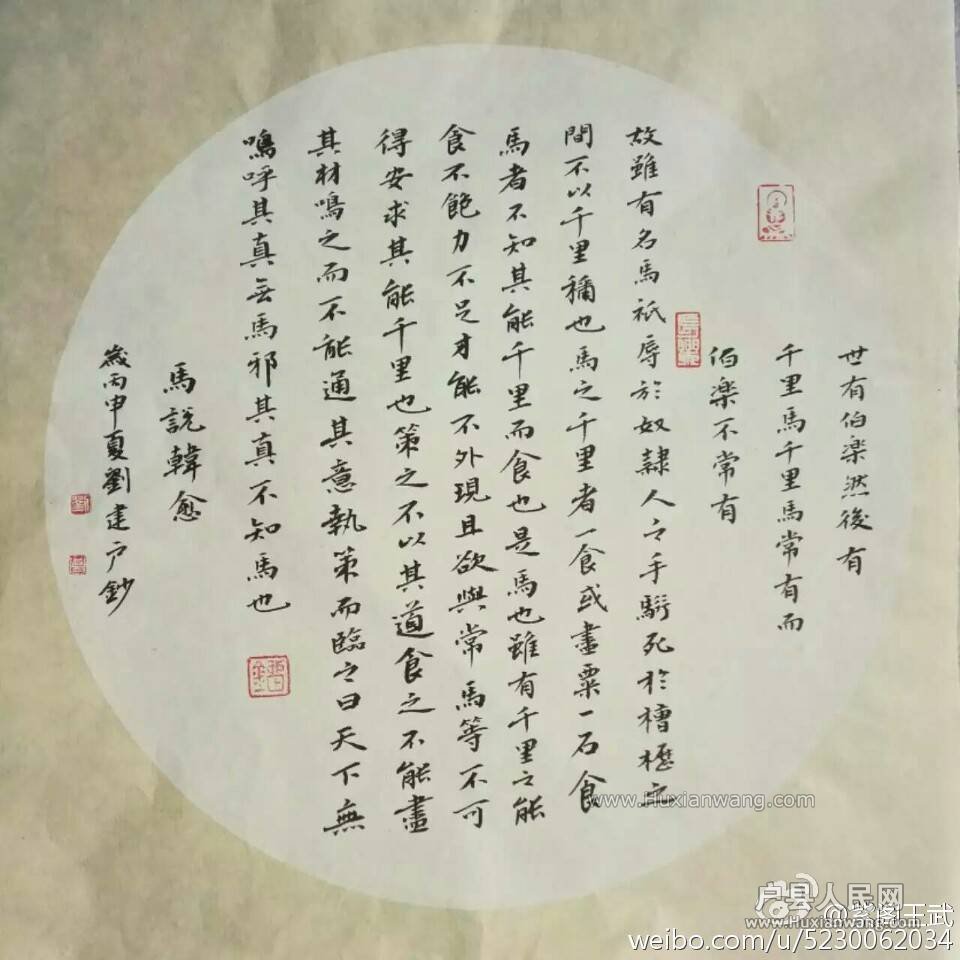 世有伯楽然後有
千里馬千里馬常有而
伯楽不常有
故雖有名馬衹辱於奴隸人之手駢死於槽櫪之
間不以千里稱也馬之千里者一食或盡粟一石食
馬者不知其能千里而食也是馬也雖有千里之能
食不飽力不足才能不外現且欲與常馬等不可
得安求其能千里也策之不以其道食之不能盡
其材鳴之而不能通其意執策而臨之曰天下無
嗚呼其真無馬邪其真不知馬也
馬說韓愈
歲丙申夏劉建户鈔
www.Huxianwang.com
户县人民网
www.Huxianwang.com
@紫阁王武
weibo.com/u/5230062034